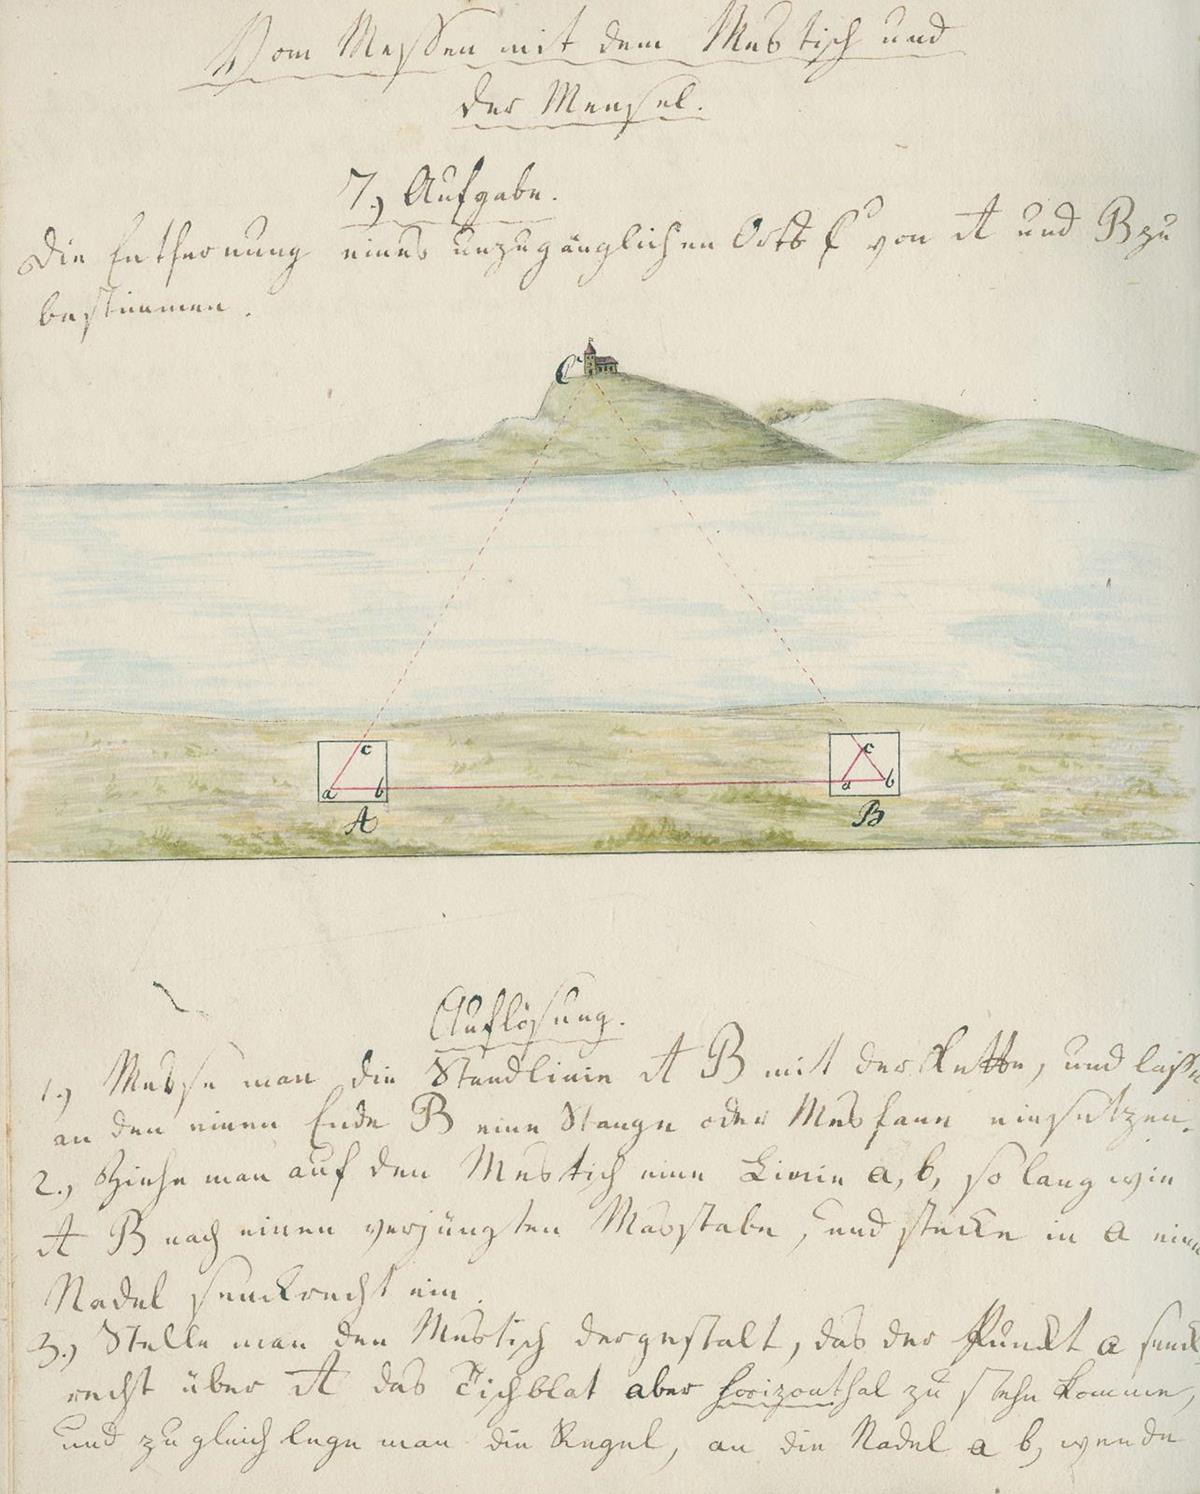 Vom Messen mit dem Mestisch und
der Mensel.
7., Aufgabe.
Die Entfernung eines unzugänglichen Orts C von A und B zu
bestimmen.
C
c
a
b
A
c
a
b
B
Auflösung.
1., Messe man die Standlinie A B mit der Kette, und lasse
an den einen Ende B eine Stange oder Mesfane einsetzen.
2., Ziehe man auf den Mestich eine Linie a, b, so lang wie
A B nach einen verjüngten Masstabe, und stecke in a eine
Nadel senckrecht ein.
3., Stelle man den Mestisch dergestalt, das der Punckt a senck
recht über A das Tichblat aber horizonthal zu stehn komme,
und zugleich lege man die Regel, an die Nadel a b, wende